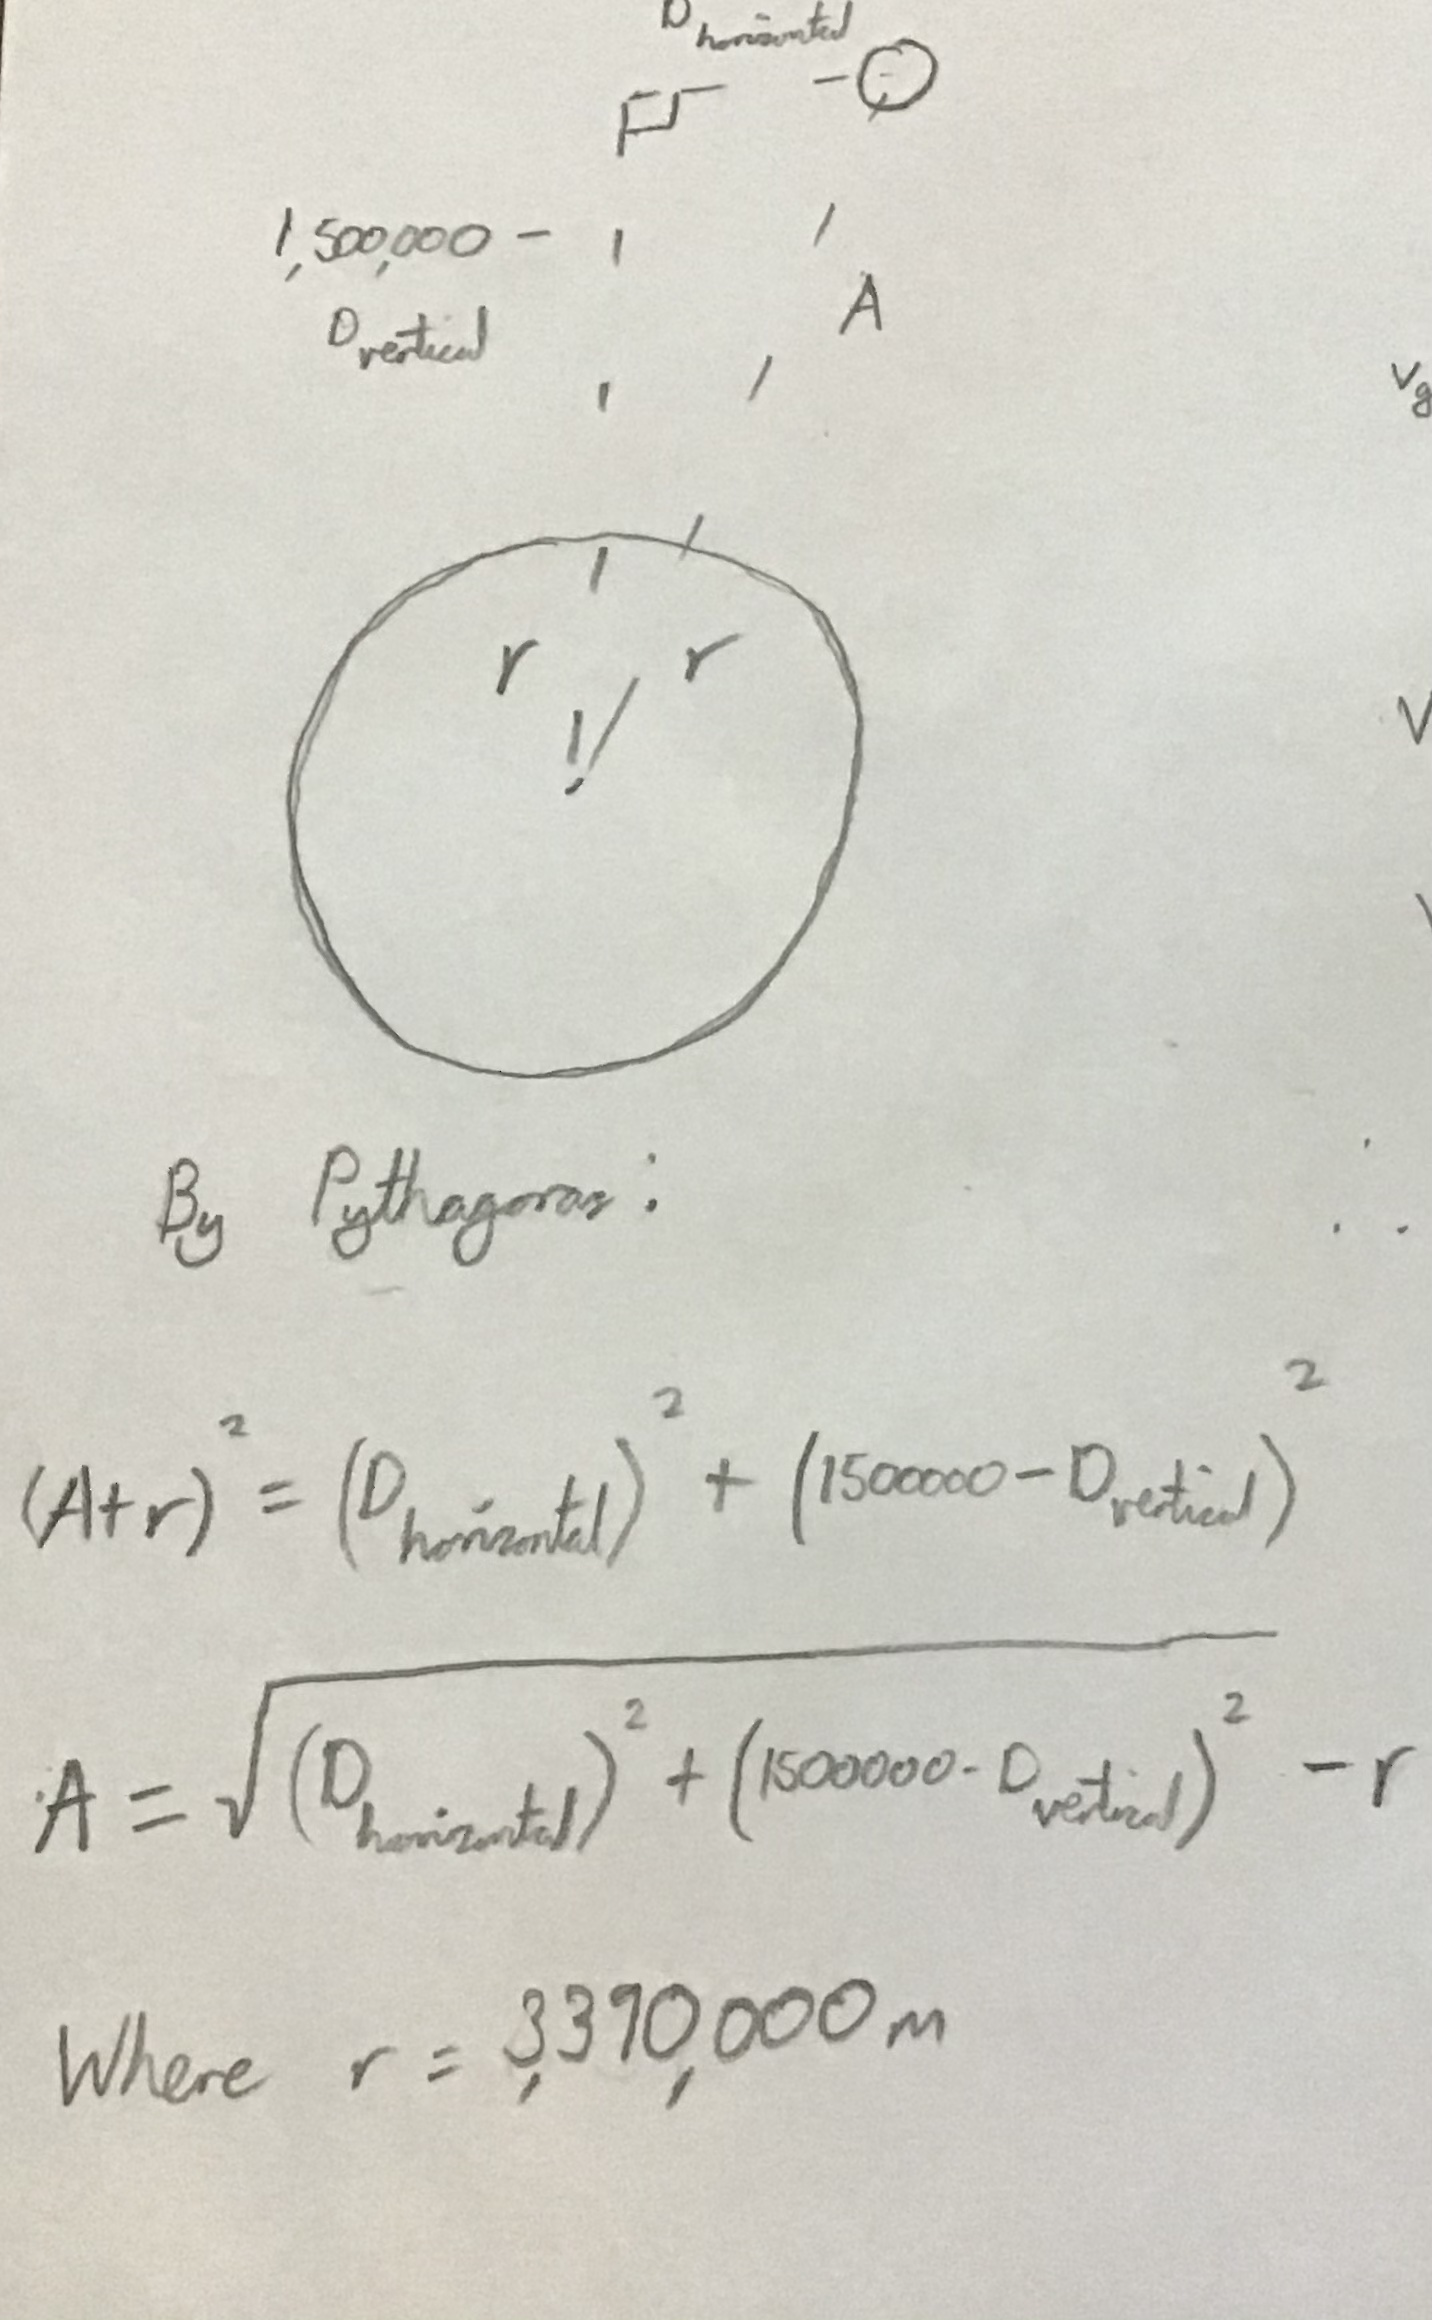 D horizontal
1,500,000 -
D vertical
A
Vg
r r
V
By Pythagoras:
(A+r)² = (D horizontal)² + (1500000 - D vertical)²
A = √(D horizontal)² + (1500000 - D vertical)² - r
Where r = 3,390,000 m